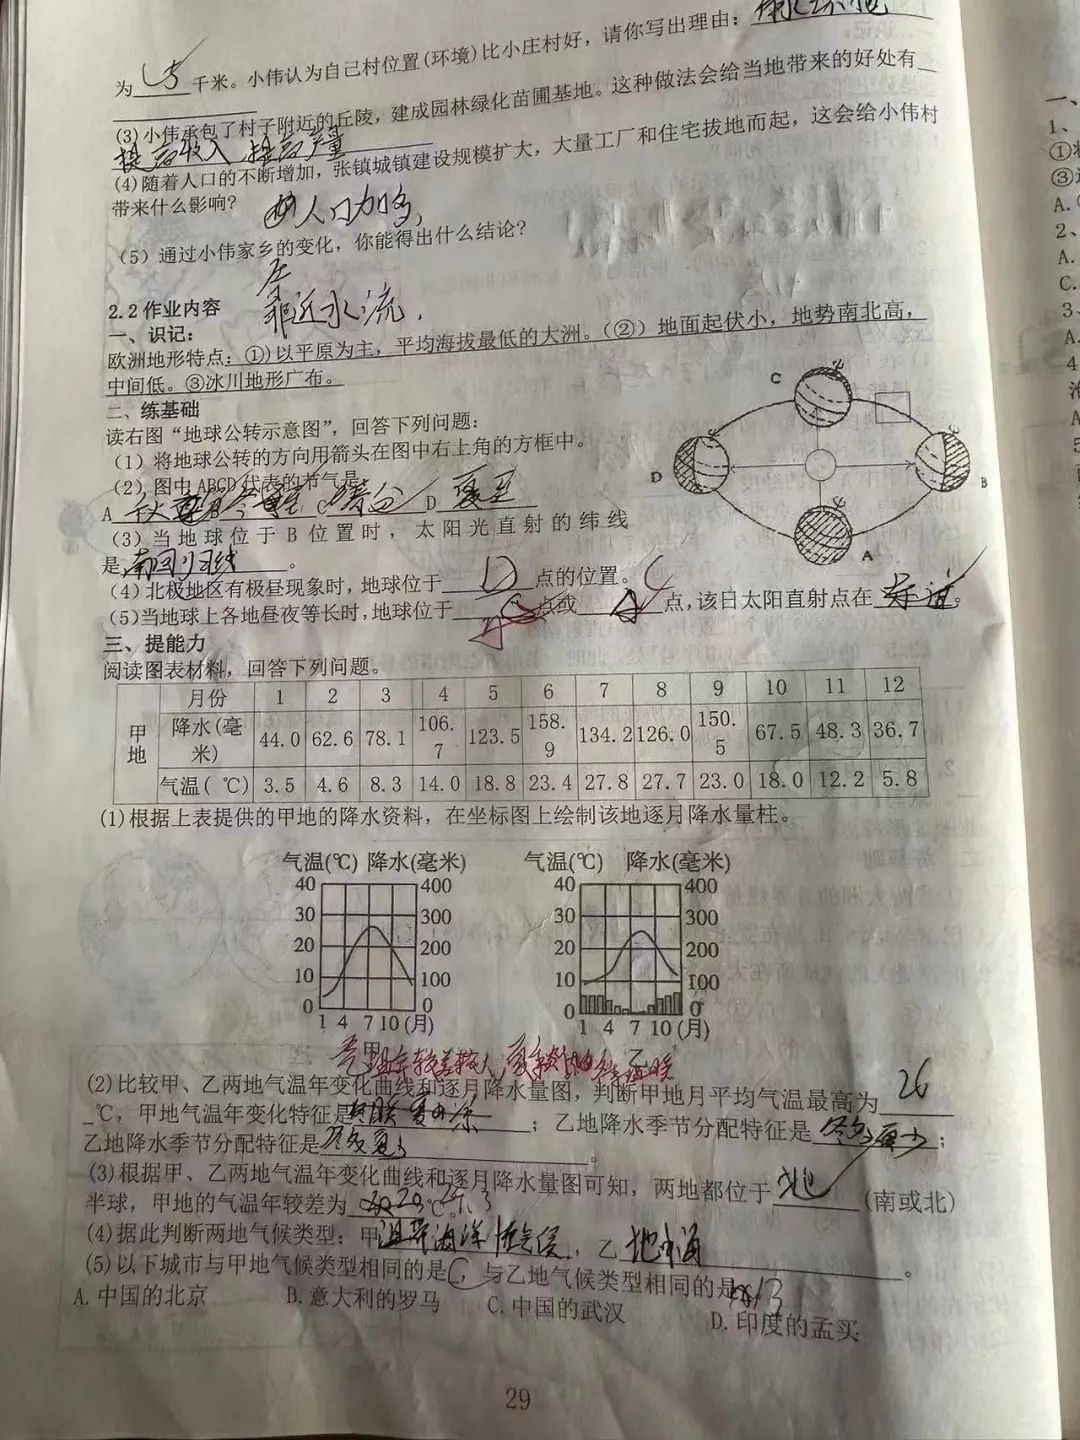 为1.5千米。小伟认为自己村位置(环境)比小庄村好，请你写出理由：
(3)小伟承包了村子附近的丘陵，建成园林绿化苗圃基地。这种做法会给当地带来的好处有
提高收入 提高产量
(4)随着人口的不断增加，张镇城镇建设规模扩大，大量工厂和住宅拔地而起，这会给小伟村
带来什么影响？
人口加多
(5)通过小伟家乡的变化，你能得出什么结论？
靠近水流
2.2作业内容
一、识记：
欧洲地形特点：①)以平原为主，平均海拔最低的大洲。(②)）地面起伏小，地势南北高，
中间低。③冰川地形广布。
二、练基础
读右图“地球公转示意图”，回答下列问题：
(1)将地球公转的方向用箭头在图中右上角的方框中。
(2)图中ABCD代表的节气是
A 秋 B 冬至 C 春分 D 夏至
(3)当地球位于B位置时，太阳光直射的纬线
是南回归线。
(4)北极地区有极昼现象时，地球位于D点的位置。
(5)当地球上各地昼夜等长时,地球位于点或点,该日太阳直射点在赤道。
C
D
B
A
三、提能力
阅读图表材料，回答下列问题。
甲地 月份 1 2 3 4 5 6 7 8 9 10 11 12
降水(毫米) 44.0 62.6 78.1 106.7 123.5 158.9 134.2 126.0 150.5 67.5 48.3 36.7
气温(℃) 3.5 4.6 8.3 14.0 18.8 23.4 27.8 27.7 23.0 18.0 12.2 5.8
(1)根据上表提供的甲地的降水资料，在坐标图上绘制该地逐月降水量柱。
气温(℃) 降水(毫米) 气温(℃) 降水(毫米)
40 400 40 400
30 300 30 300
20 200 20 200
10 100 10 100
0 0 0 0
1 4 7 10(月) 1 4 7 10(月)
甲 乙
(2)比较甲、乙两地气温年变化曲线和逐月降水量图，判断甲地月平均气温最高为 26
℃，甲地气温年变化特征是；乙地降水季节分配特征是冬多夏少；
乙地降水季节分配特征是。
(3)根据甲、乙两地气温年变化曲线和逐月降水量图可知，两地都位于北(南或北)
半球，甲地的气温年较差为
(4)据此判断两地气候类型：甲，乙地中海。
(5)以下城市与甲地气候类型相同的是C，与乙地气候类型相同的是B
A.中国的北京 B.意大利的罗马 C.中国的武汉 D.印度的孟买
29